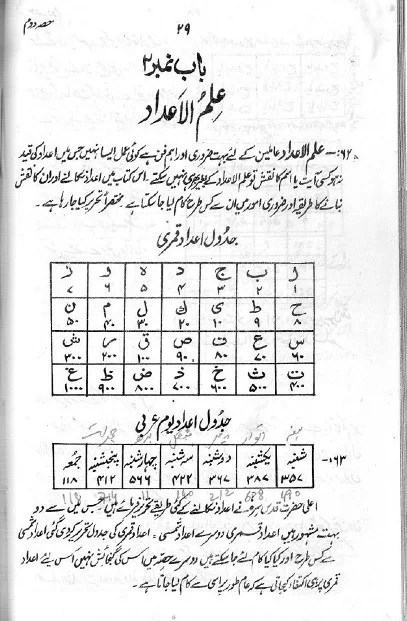 ۲۹ حصہ دوم
باب نمبر ۲
علم الاعداد
۶۲:- علم الاعداد عاملین کے لئے بہت ضروری اور اہم فن ہے کوئی عمل ایسا نہیں جس میں اعداد کی قید
نہ ہو کسی آیت یا اسم کا نقش تو علم الاعداد کے بغیر نہیں سکتے۔ اس کتاب میں اعداد نکالنے اور ان کا نقش
بنانے کا طریقہ اور ضروری امور میں ان سے کس طرح کام لیا جا سکتا ہے۔ مختصراً تحریر کیا جا رہا ہے۔
جدول اعداد قمری
ا ب ج د ہ و ز
۱ ۲ ۳ ۴ ۵ ۶ ۷
ح ط ی ک ل م ن
۸ ۹ ۱۰ ۲۰ ۳۰ ۴۰ ۵۰
س ع ف ص ق ر ش
۶۰ ۷۰ ۸۰ ۹۰ ۱۰۰ ۲۰۰ ۳۰۰
ت ث خ ذ ض ظ غ
۴۰۰ ۵۰۰ ۶۰۰ ۷۰۰ ۸۰۰ ۹۰۰ ۱۰۰۰
جدول اعداد یوم عربی
ہفتہ اتوار پیر منگل بدھ جمعرات
۶۳:- شنبہ یکشنبہ دوشنبہ سہ شنبہ چہارشنبہ پنجشنبہ جمعہ
۳۵۷ ۳۸۷ ۳۶۷ ۴۲۲ ۵۶۶ ۴۱۲ ۱۱۸
118 212 490
اعلیٰ حضرت قدس سرہ نے اعداد نکالنے کے کئی طریقے تحریر فرمائے ہیں جس میں سے دو
بہت مشہور ہیں اعداد قمری دوسرے اعداد شمسی۔ اعداد قمری کی جدول تحریر کر دی گئی اعداد شمسی
سے کس طرح اور کیا کیا کام لئے جا سکتے ہیں دوسرے حصہ میں اس کی گنجائش نہیں اس لئے اعداد
قمری پر ہی اکتفا کیا جاتی ہے کہ عام طور پر اسی سے کام لیا جاتا ہے۔